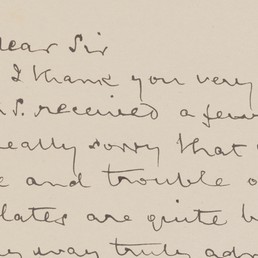 Dear Sir
I thank you very
S. received a few
really sorry that
and trouble
plates are quite
way truly